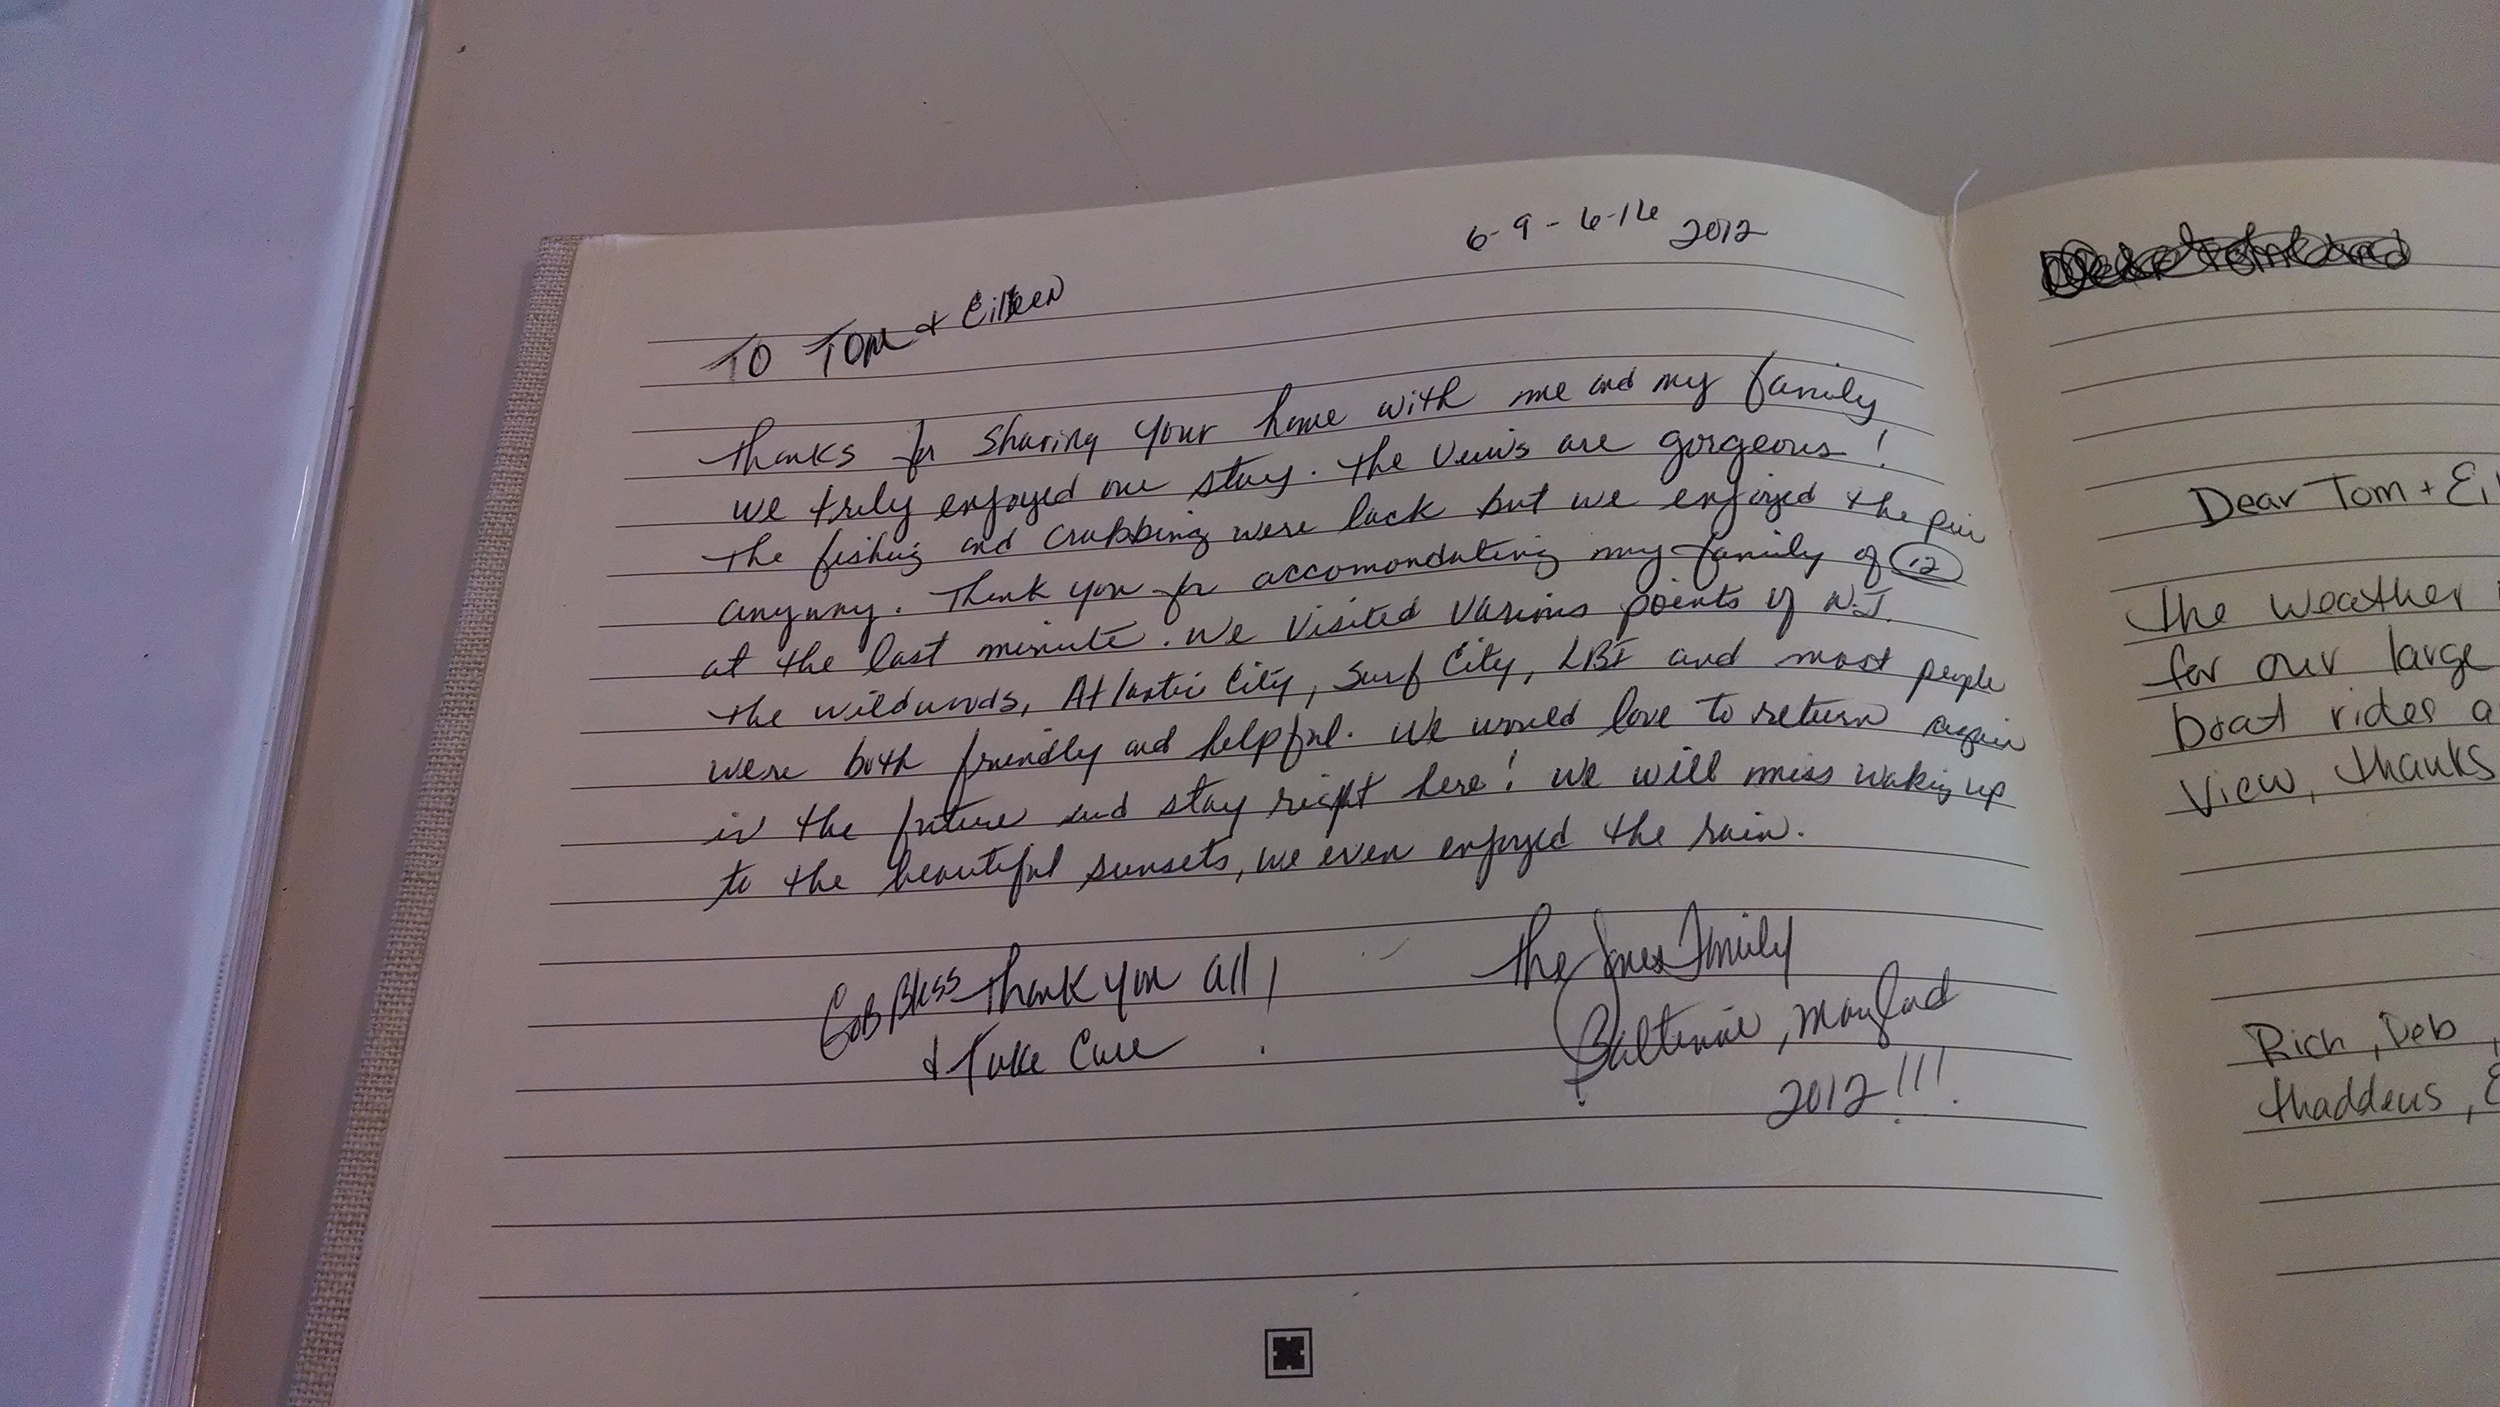 6-9 - 6-16 2012
TO Tom + Eileen
Thanks for sharing your home with me and my family
we truly enjoyed our stay. The views are gorgeous!
The fishing and crabbing were lack but we enjoyed the pier
anyway. Thank you for accomondating my family of 12
at the last minute. We visited various points of N.J.
the wildwoods, Atlantic City, Surf City, LBI and most people
were both friendly and helpful. We would love to return again
in the future and stay right here! We will miss waking up
to the beautiful sunsets, we even enjoyed the rain.
God Bless Thank you all!
& Take Care
The Jones Family
Baltimore, Maryland
2012!!!
Dear Tom + Ei
The weather
for our large
boat rides a
View, thanks
Rich, Deb,
Thaddeus, E